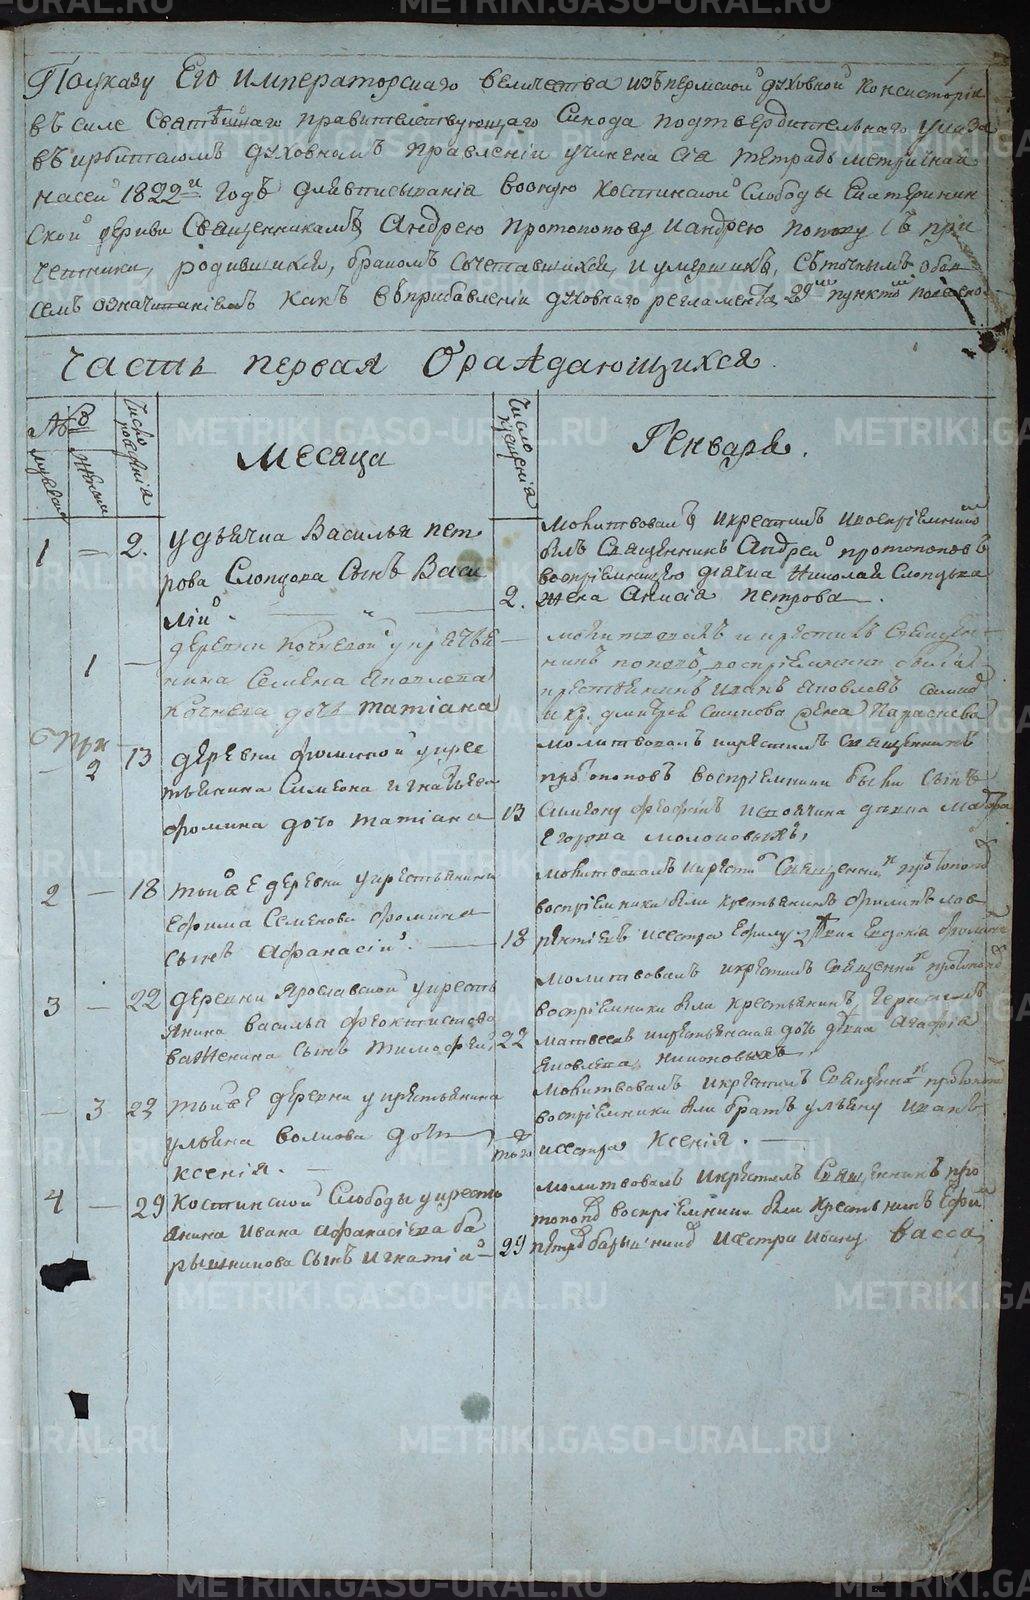 METRIKI.GASO-URAL.RU
1
Поуказу Его императорскаго величества изъ пермской духовной консисторіи
въ силе Святейшаго правителствующаго Синода подтвердителнаго указа
въ ирбитскомъ духовномъ правленіи учинена сіа тетрадь метричная
насей 1822й годъ длявписыванія вооную костинской Слободы Екатеринин
ской церкви Священникамъ Андрею протопопову иандрею попову съ при
четники, родившихся, бракомъ сочетавшихся, и умершихъ, съточнымъ обо
семъ означитаніемъ какъ въприбавленіи духовнаго регламента 29м пункте
Часть первая Ораждающихся.
Число рожденія
Месяца
Число крещенія
Генваря.
мужеска
женска
1 = 2. у дьячка Василья пет
рова Слопцова Сынъ Васи
лій.
2. молитвовалъ икрестилъ ивоспріемникомъ
былъ Священникъ Андрей протопоповъ
воспріемницею дьячка Николая Слопцова
жена Анисіа петрова.
1 — деревни кочневой укрестья
нина Семена
Кочнева дочь татіана
молитвовалъ и крестилъ Священ
никъ поповъ, воспріемники были
крестьянинъ иванъ яковлевъ
— 2 13 деревни фоминской укрес
тьянина Симиона игнатьева
фомина дочь татіана
13 молитвовалъ икрестилъ Священникъ
протопоповъ воспріемники были Сынъ
Симиону
Егорова молоковыхъ,
2 — 18 тойже деревни укрестьянина
Ефима Семенова фомина
сынъ Афанасій.
18 молитвовалъ икрестилъ Священникъ протопоповъ
воспріемники были крестьянинъ филипъ лав
рентіевъ исестра Ефиму девка Евдокіа фомина
3 — 22 деревни Ярославской укресть
янина василья феоктистова
важенина сынъ тимофей
22 молитвовалъ икрестилъ Священникъ протопоповъ
воспріемники были крестьянинъ Герасимъ
матвеевъ икрестьянская дочь девка Агафіа
яковлева никоновыхъ.
— 3 23 тойже деревни укрестьянина
ульяна волкова дочь
ксенія. —
тогож молитвовалъ икрестилъ Священникъ протопоповъ
воспріемники были братъ ульяну иванъ
исестра Ксенія. —
4 — 29 Костинской Слободы укресть
янина ивана афанасіева ба
рышникова Сынъ игнатій
29 молитвовалъ икрестилъ Священникъ про
топоповъ воспріемники были крестьянинъ Ефимъ
петровъ барышниковъ исестра ивану васса